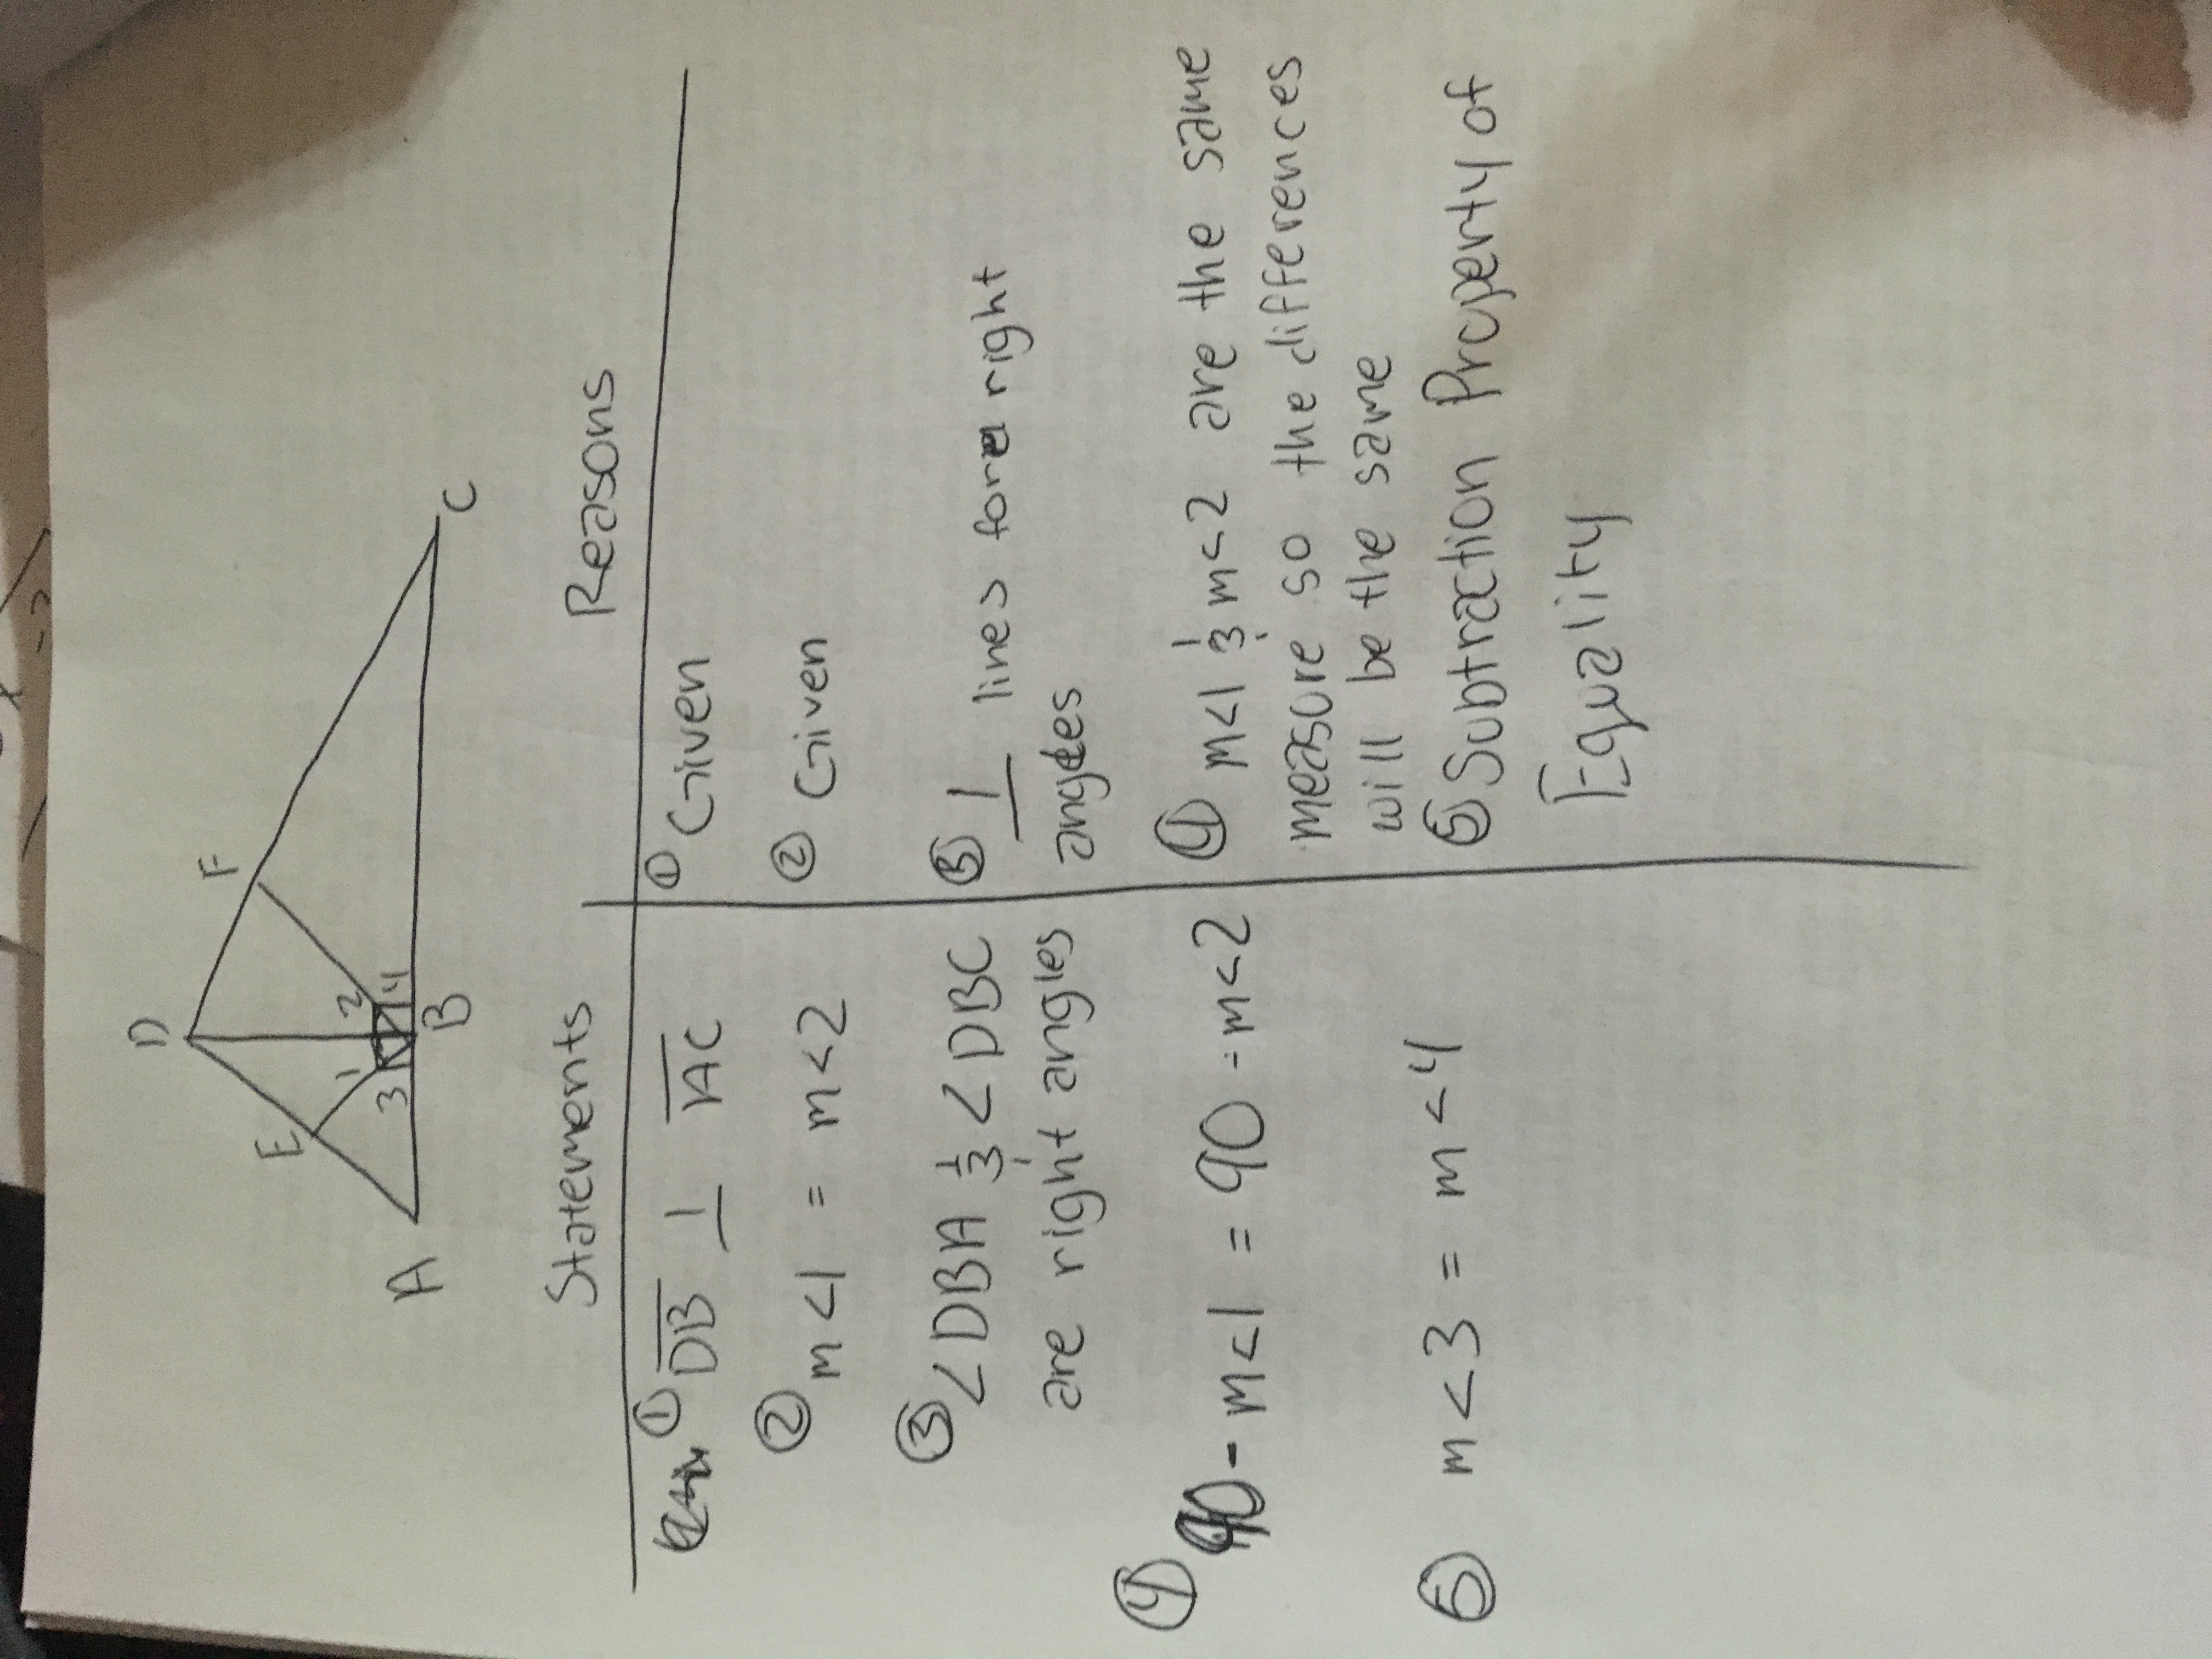 D
F
E
1
2
3
4
A
B
C
Statements
Reasons
① DB ⊥ AC
① Given
② m<1 = m<2
② Given
③ <DBA & <DBC
are right angles
③ ⊥ lines form right
angles
④ 90-m<1 = 90-m<2
④ m<1 & m<2 are the same
measure so the differences
will be the same
⑤ m<3 = m<4
⑤ Subtraction Property of
Equality